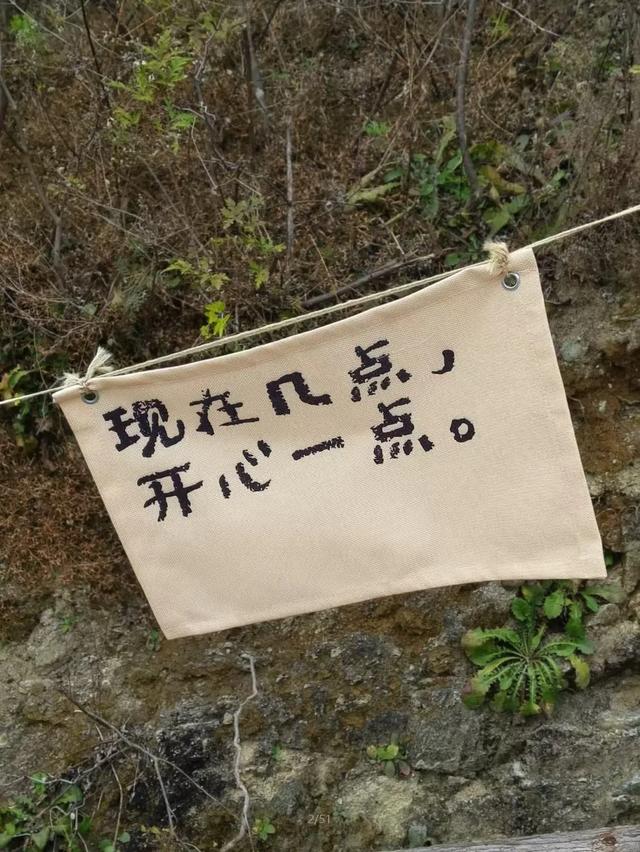 现在几点，
开心一点。
2/51